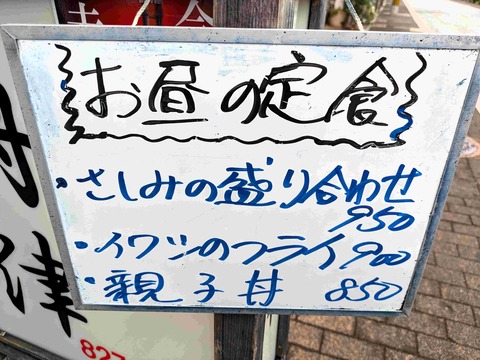 お昼の定食
・さしみの盛り合わせ
950
・イワシのフライ 900
・親子丼 850
津
827